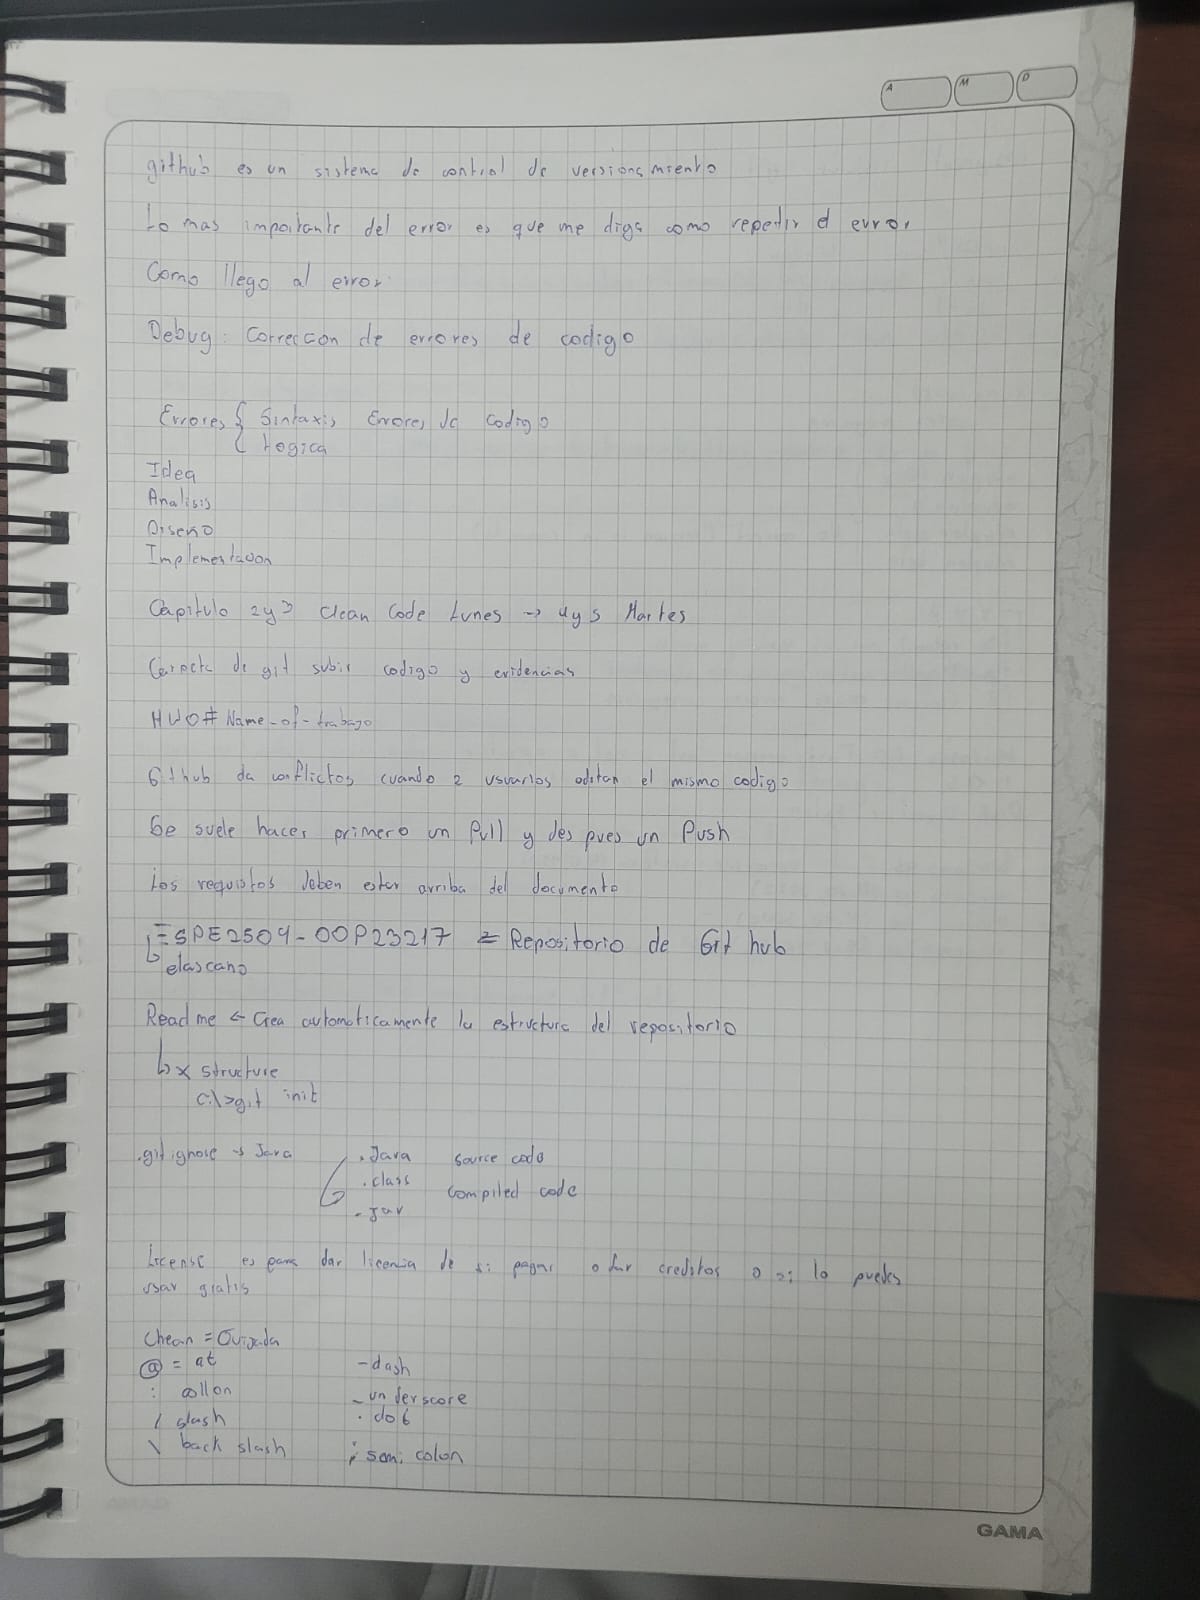 A M D
github es un sistema de control de versionamiento
Lo mas importante del error es que me diga como repetir el error
Como llego al error
Debug: Correccon de errores de codigo
Errores { Sintaxis Errores de codigo
Logica
Idea
Analisis
Diseño
Implementacion
Capitulo 2y3 Clean Code Lunes → 4y5 Martes
Carpeta de git subir codigo y evidencias
HW0# Name-of-trabajo
Github da conflictos cuando 2 usuarios editan el mismo codigo
Se suele hacer primero un Pull y despues un Push
Los requistos deben estar arriba del documento
ESPE2504-OOP23217 = Repositorio de Git hub
elascano
Readme ← Crea automaticamente la estructura del repositorio
↳ x structure
C:\>git init
.gitignore → Java .Java source code
.class Compiled code
.jar
License es para dar licencia de si pagar o dar creditos o si lo puedes
usar gratis
@ = at - dash
: collon _ underscore
/ slash . dot
\ back slash ; semi colon
GAMA